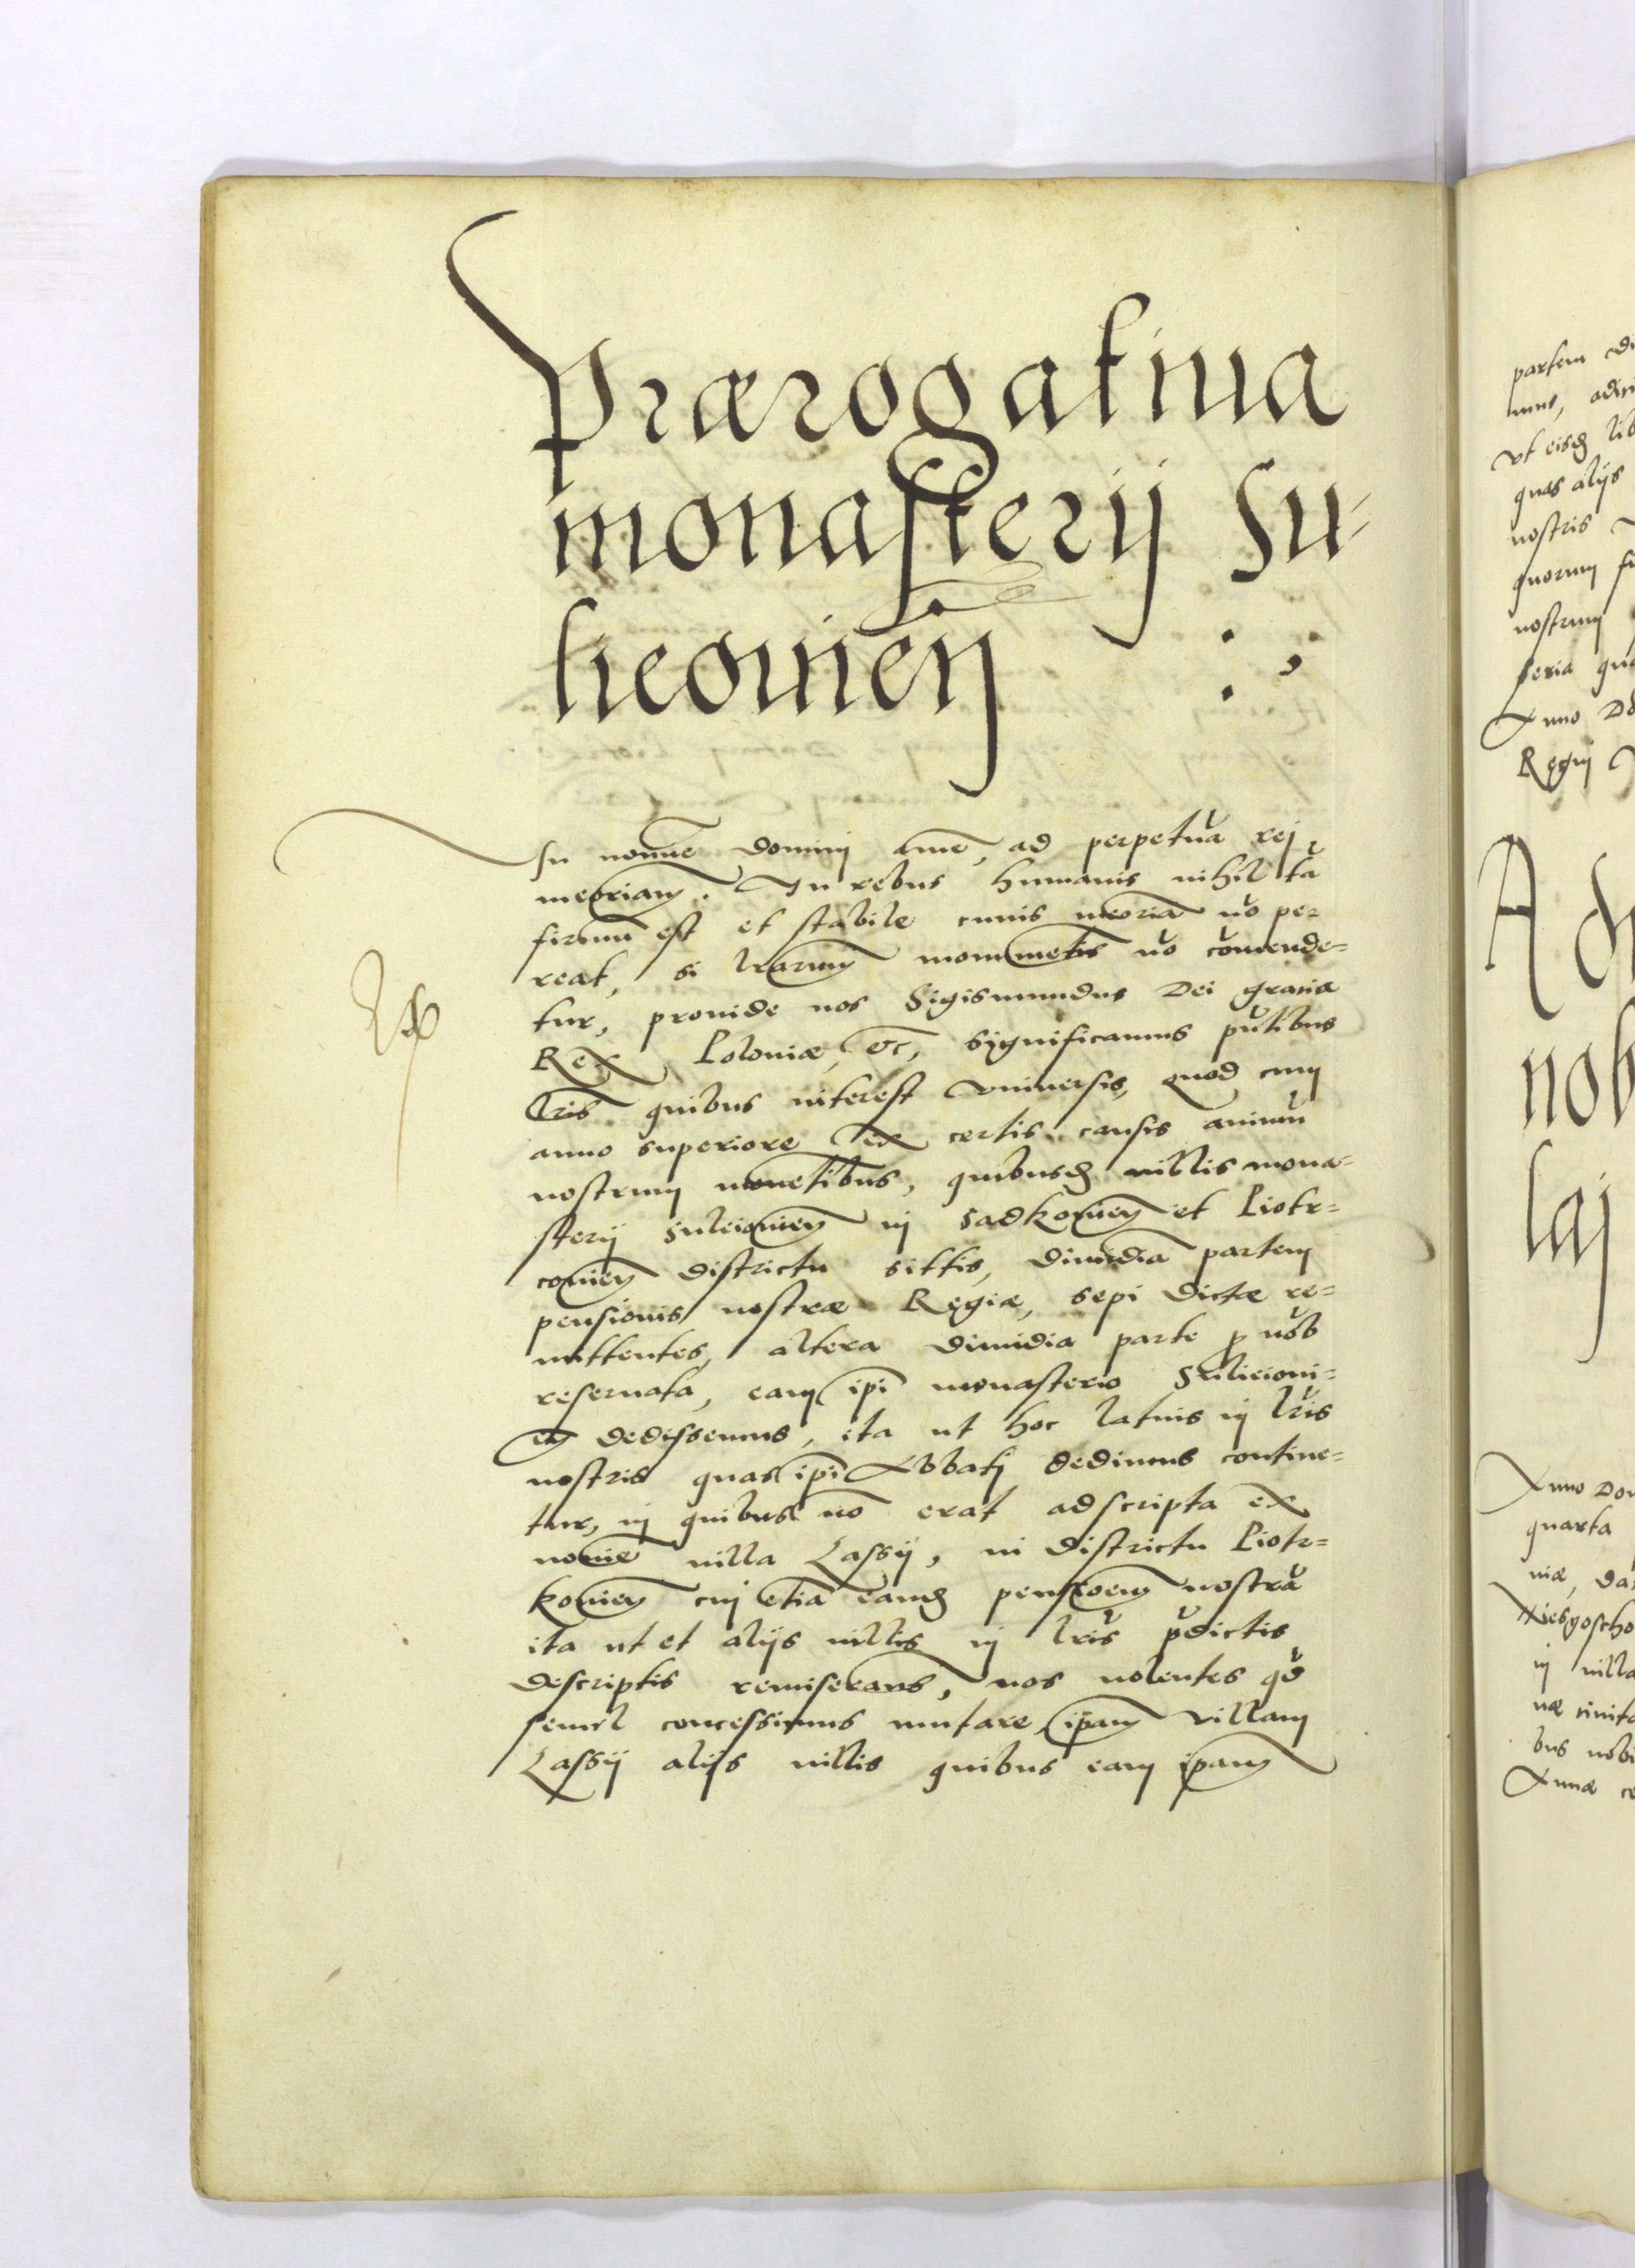 Prærogatiua
monasterij Su-
lieouień :,
In nomine domini ame, ad perpetuā rej
meoriam. In rebus humanis nihil tā
firmu est et stabile cuius meoriā nō pe-
reat, si lrarum monumetis nō cōmende-
tur, prouide nos Sigismundus Dei gratia
Rex Poloniæ, &c, significamus pntibus
Lris quibus interest vniuersis, quod cum
anno superiore ex certis causis animū
nostrum mouetibus, quibusd villis mona-
sterij Suleiouien in Sadkouien et Piotr-
couien districtu sittis, dimidiā partem
pensionis nostræ Regiæ, sepi dictæ re-
mittentes, altera dimidia parte p nob
reseruata, eam ipi monasterio Sulieioui-
en dedissemus, ita ut hoc latius in lris
nostris quas ipi Abbatj dedimus contine-
tur, in quibus nō erat adscripta ex
noīe villa Lassij, in districtu Piotr-
kouien cuj etiā eand pensioem nostrā
ita ut et alijs villis in lris pdictis
descriptis remiserams, nos nolentes qd
semel concessimus mutare ipam villam
Lassij alijs villis quibus eam ipam
Rx
partem di
mus,
vt eisd lib
quas alijs
nostris
quorum
nostrum
feria qua
Anno Do
Regnj
Ad
nob
laj
Anno Dom
quarta
niæ, da

in villa
næ
bus nobi
Annæ